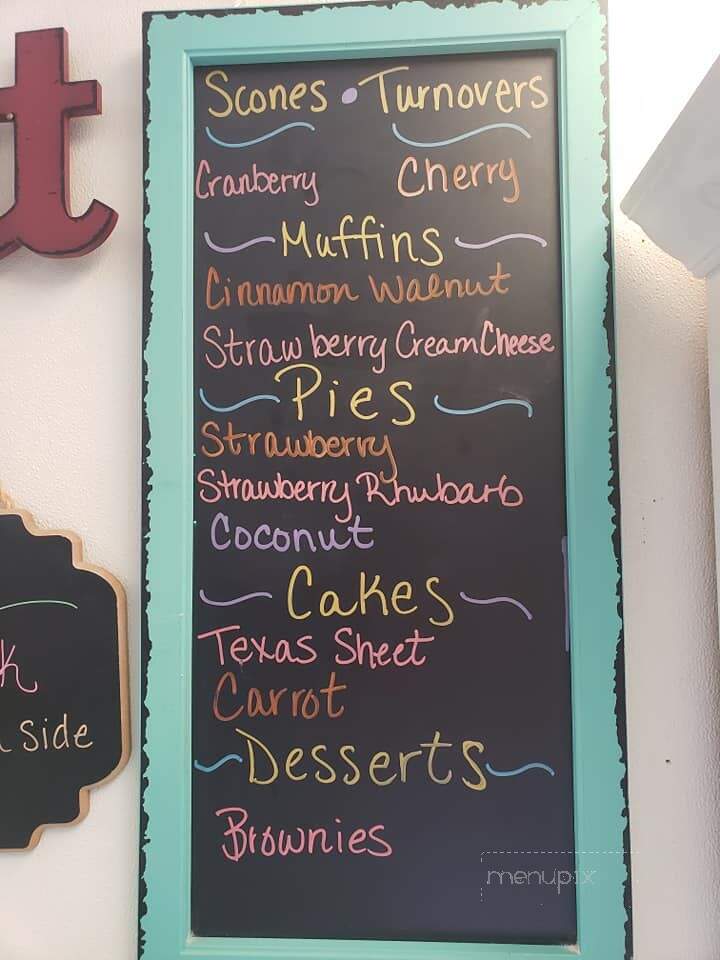 t
Scones • Turnovers
Cranberry Cherry
Muffins
Cinnamon Walnut
Strawberry CreamCheese
Pies
Strawberry
Strawberry Rhubarb
Coconut
Cakes
Texas Sheet
Carrot
Desserts
Brownies
k
Side
menupix